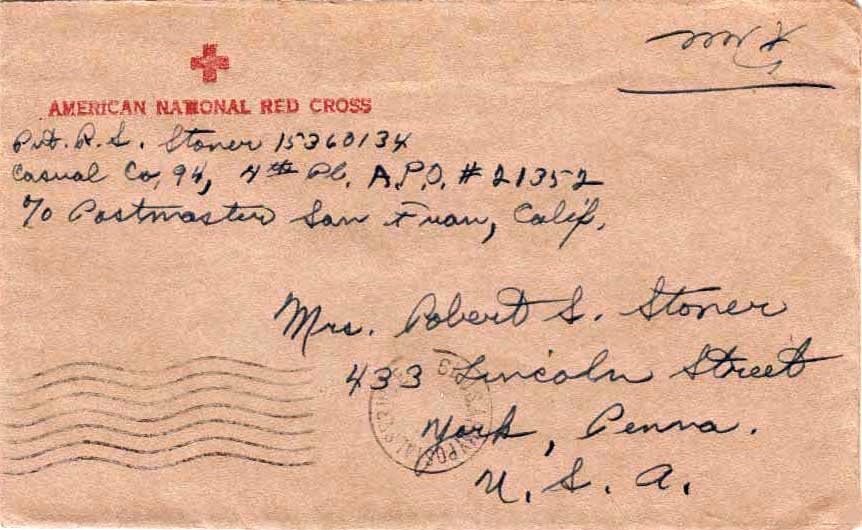 AMERICAN NATIONAL RED CROSS
Pvt. R. S. Stoner 15360134
Casual Co, 94, 4th Pl. A.P.O. # 21352
c/o Postmaster San Fran, Calif.
Mrs. Robert S. Stoner
433 Lincoln Street
York, Penna.
U. S. A.